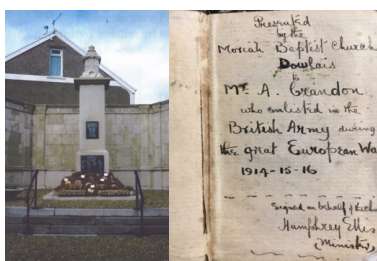 Presented
by the
Moriah Baptist Church
Dowlais
to
Mr. A. Crandon
who enlisted in the
British Army during
the great European Wa
1914-15-16
Signed on behalf of
Humphrey Ellis
(Minister)